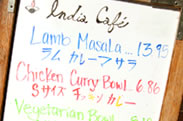 India Café
Lamb Masala... 13.95
ラム カレー マサラ
Chicken Curry Bowl.. 6.86
Sサイズ チキン カレー
Vegetarian Bowl